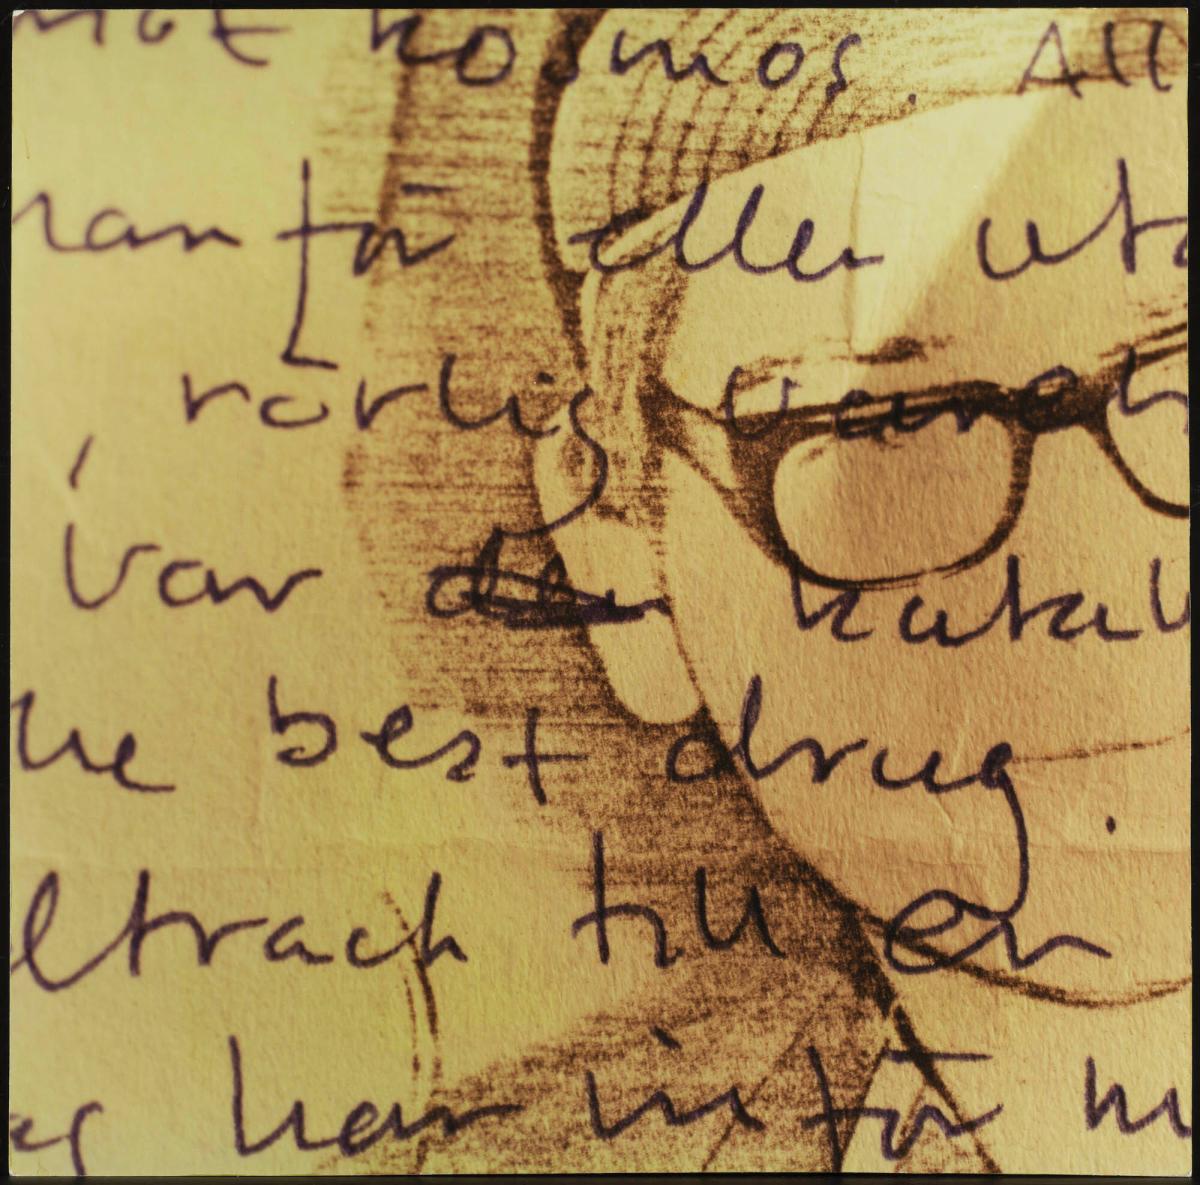 mot kosmos. All
ranför eller uta
rörlig varels
var katal
he best drug.
eltrach till en
ag har inför m